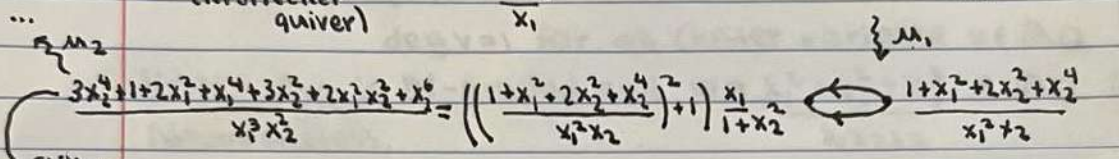 ...
quiver)
x₁
μ₂
μ₁
(3x₂⁴+1+2x₁²+x₁⁴+3x₂²+2x₁²x₂²+x₂⁶)/(x₁³x₂²) = (((1+x₁²+2x₂²+x₂⁴)/(x₁²x₂))²+1) x₁/(1+x₂²) (1+x₁²+2x₂²+x₂⁴)/(x₁²x₂)